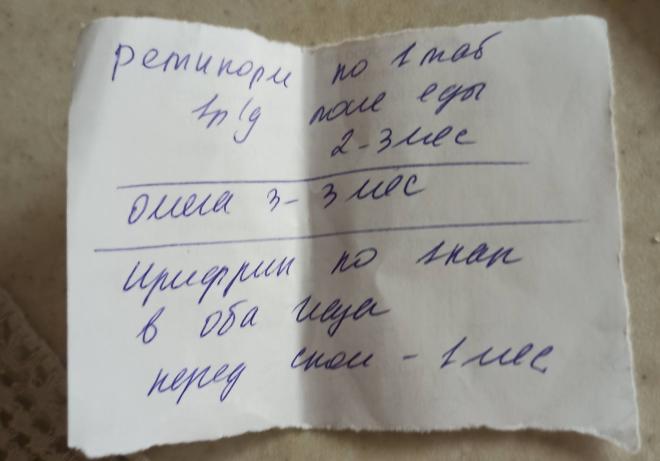 ретинорм по 1 таб
1р/д после еды
2-3 мес
омега 3 - 3 мес
Ирифрин по 1 кап
в оба глаза
перед сном - 1 мес